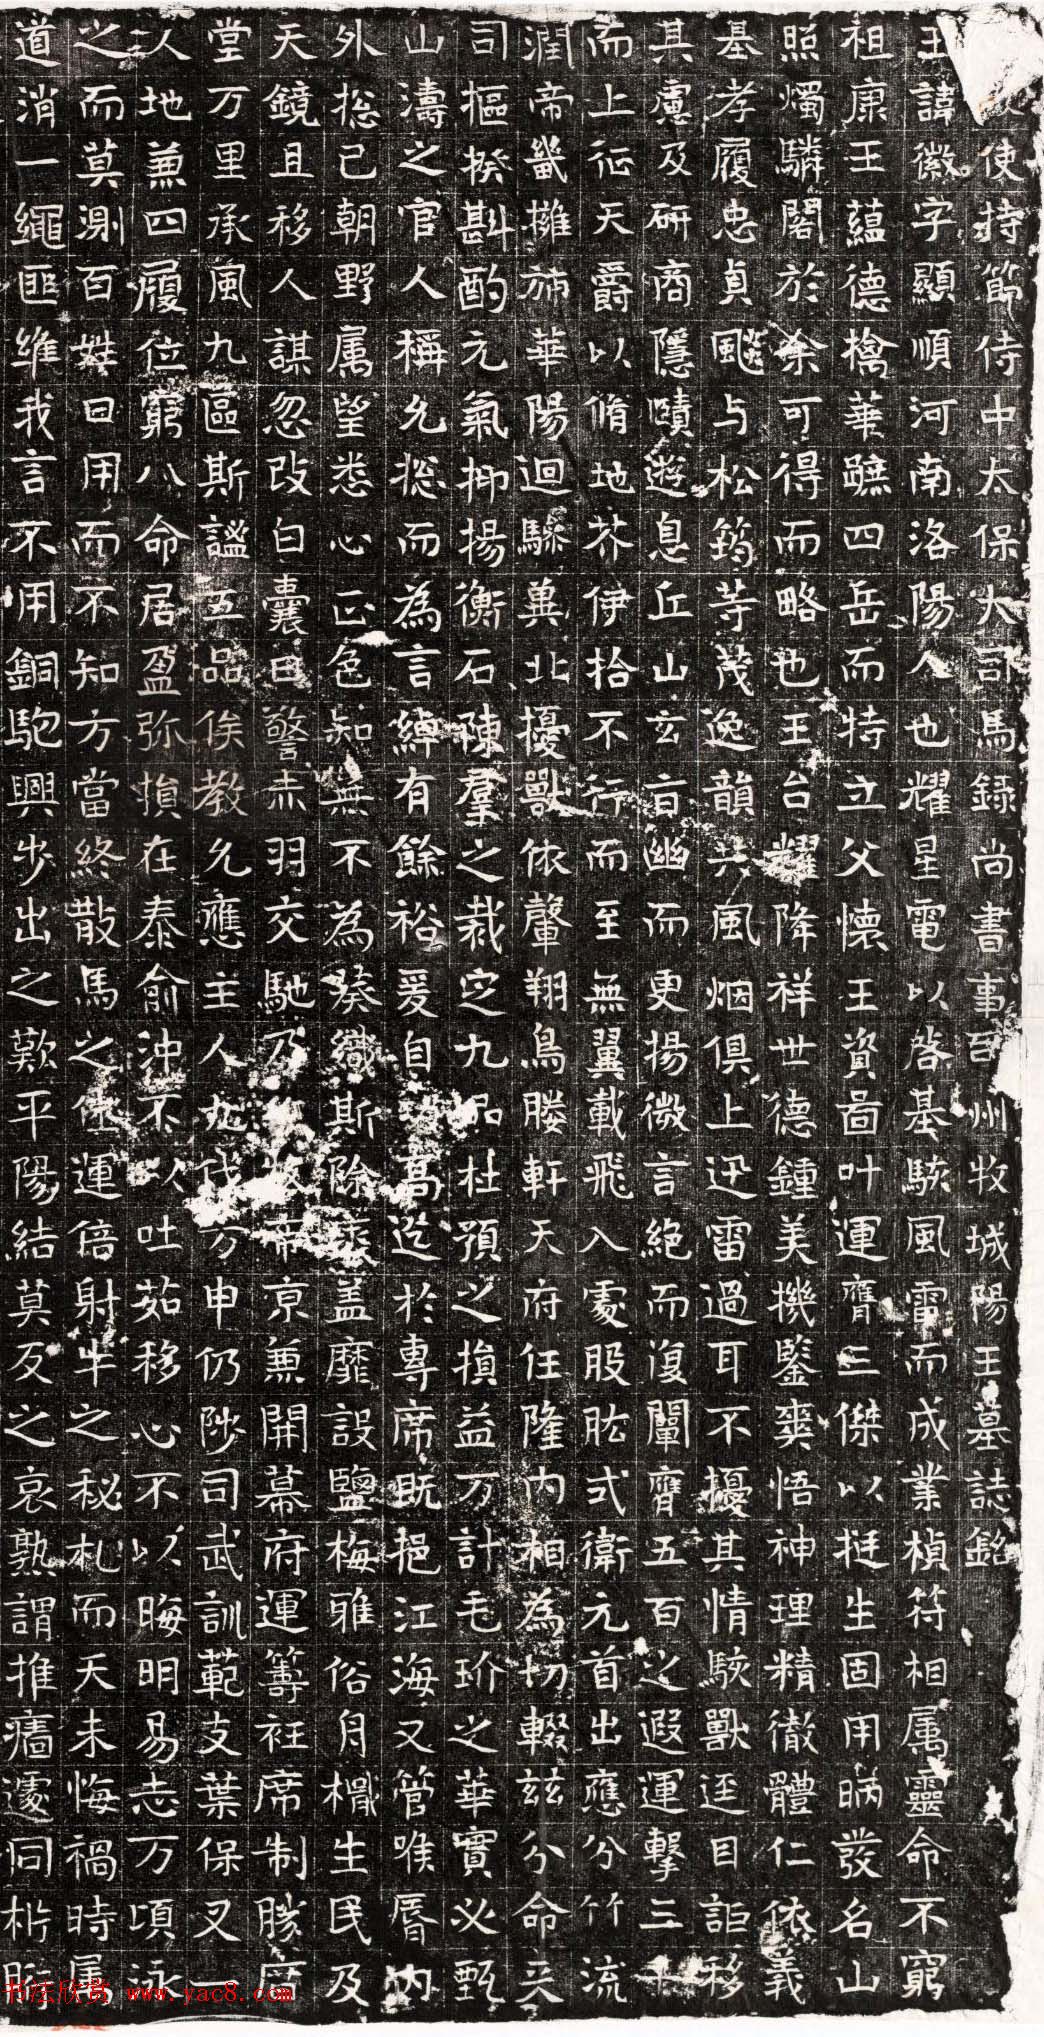 使持節侍中太保大司馬錄尚書事司州牧城陽王墓誌銘
王諱徽字顯順河南洛陽人也耀星電以啓基駭風雷而成業楨符相属靈命不窮
祖康王蘊德擒華蹠四岳而特立父懷王資啚叶運膺三傑以挺生固用昞發名山
照燭驎閣於余可得而略也王台耀降祥世德鍾美機鑒爽悟神理精徹體仁依義
基孝履忠貞飈与松筠等茂逸韻共風烟俱上迅雷過耳不擾其情駭獸逕目詎移
其慮及研商隱賾遊息丘山玄旨幽而更揚微言絕而復闡膺五百之遐運擊三千
而上征天爵以脩地芥伊拾不行而至無翼載飛入處股肱式衛元首出應分竹流
潤帝畿擁斾華陽迴驂冀北擾獸依輦翔鳥塍軒天府任隆内相為切輟兹分命天
司樞揆斟酌元氣抑揚衡石陳羣之裁定九品杜預之損益万計毛玠之華實必甄
山濤之官人稱允捴而為言綽有餘裕爰自 高迄於專席既挹江海又管喉脣内
外捴己朝野属望悉心正色知無不為癸 織斯除 蓋靡設鹽梅雅俗舟檝生民及
天鏡且移人謀忽改白囊日警赤羽交馳乃 帝京兼開幕府運籌衽席制勝厝
堂万里承風九區斯謐五品俟教允應主人九伐万申仍陟司武訓範支葉保乂一
人地兼四履位窮八命居盈弥損在泰俞沖不以吐茹移心不以晦明易志万頃泳
之而莫測百姓日用而不知方當終散馬之 運倍射牛之秘札而天未悔禍時属
道消一繩匪維我言不用銅駞興步出之歎平陽結莫反之哀孰謂推牆遽同析
书法欣赏 www.yac8.com